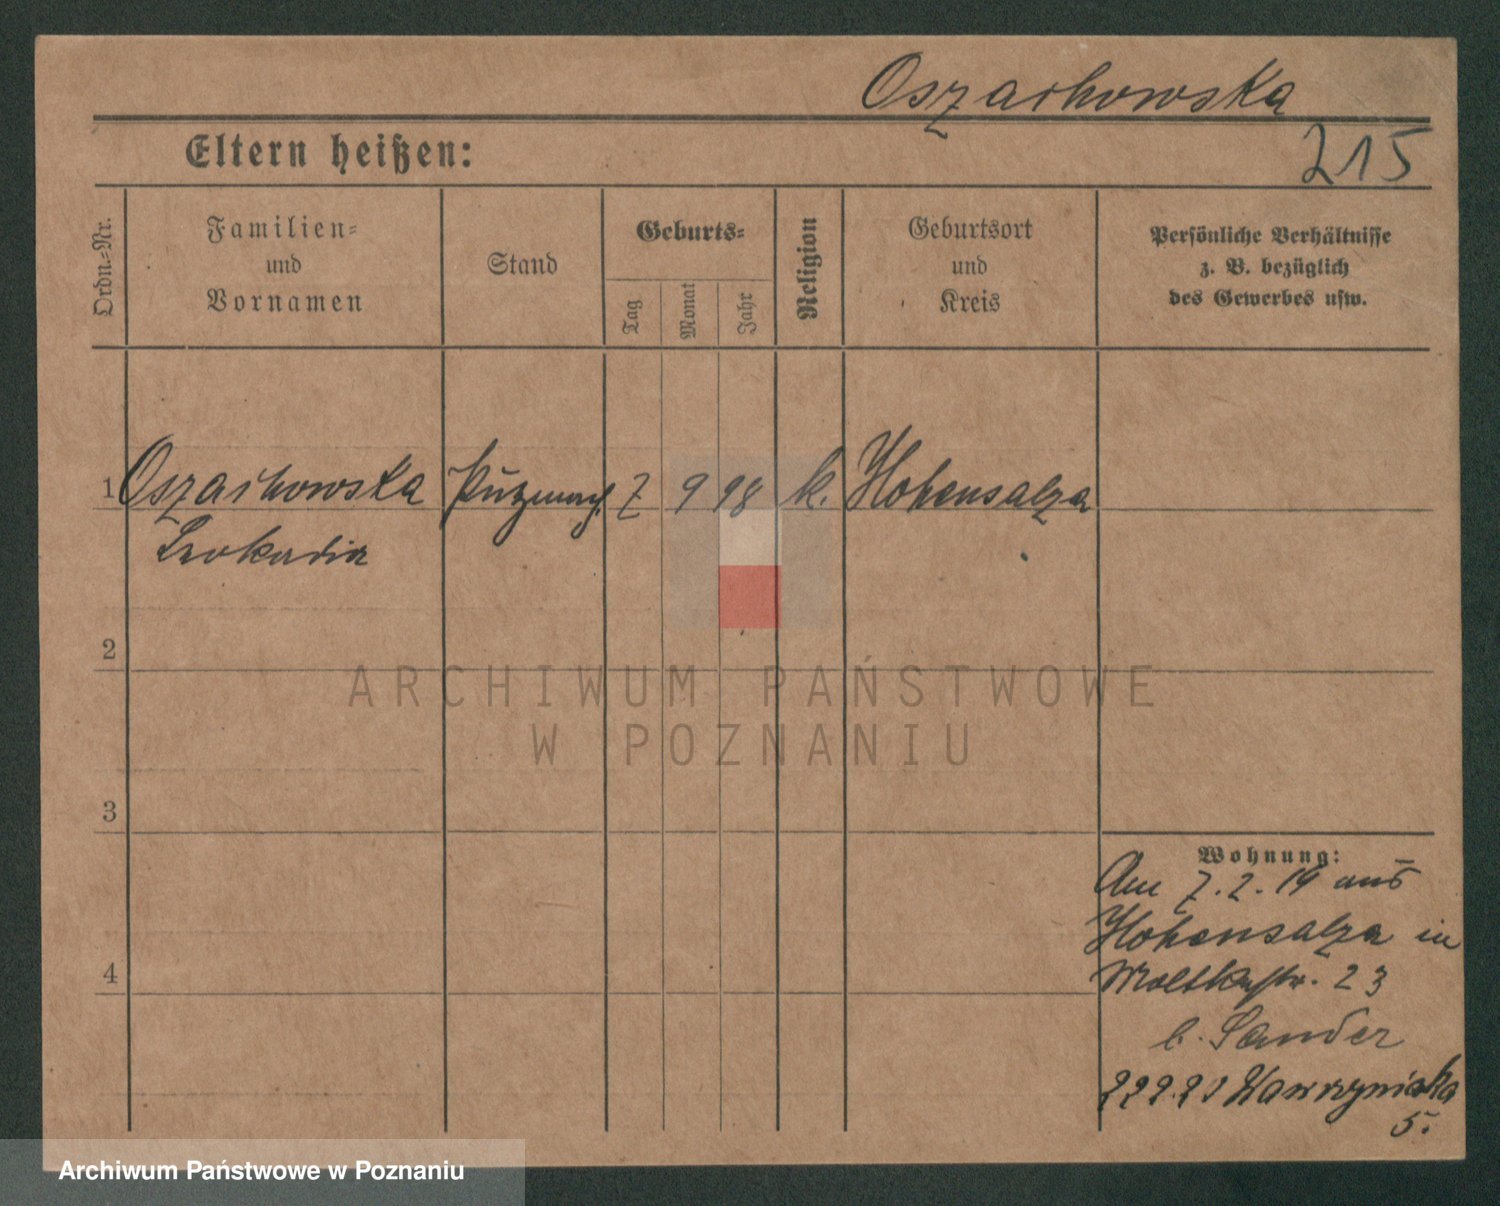 Oszachowska
215
Eltern heißen:
Ordn.-Nr.
Familien-
und
Vornamen
Stand
Geburts-
Tag
Monat
Jahr
Religion
Geburtsort
und
Kreis
Persönliche Verhältnisse
z. B. bezüglich
des Gewerbes usw.
1 Oszachowska Putzmach. 7 9 98 k. Hohensalza
Leokadia
2
ARCHIWUM PAŃSTWOWE
W POZNANIU
3
4
Wohnung:
Am 7. 2. 19 aus
Hohensalza in
Moltkestr. 23
b. Sander
Wawrzyniaka
5.
Archiwum Państwowe w Poznaniu